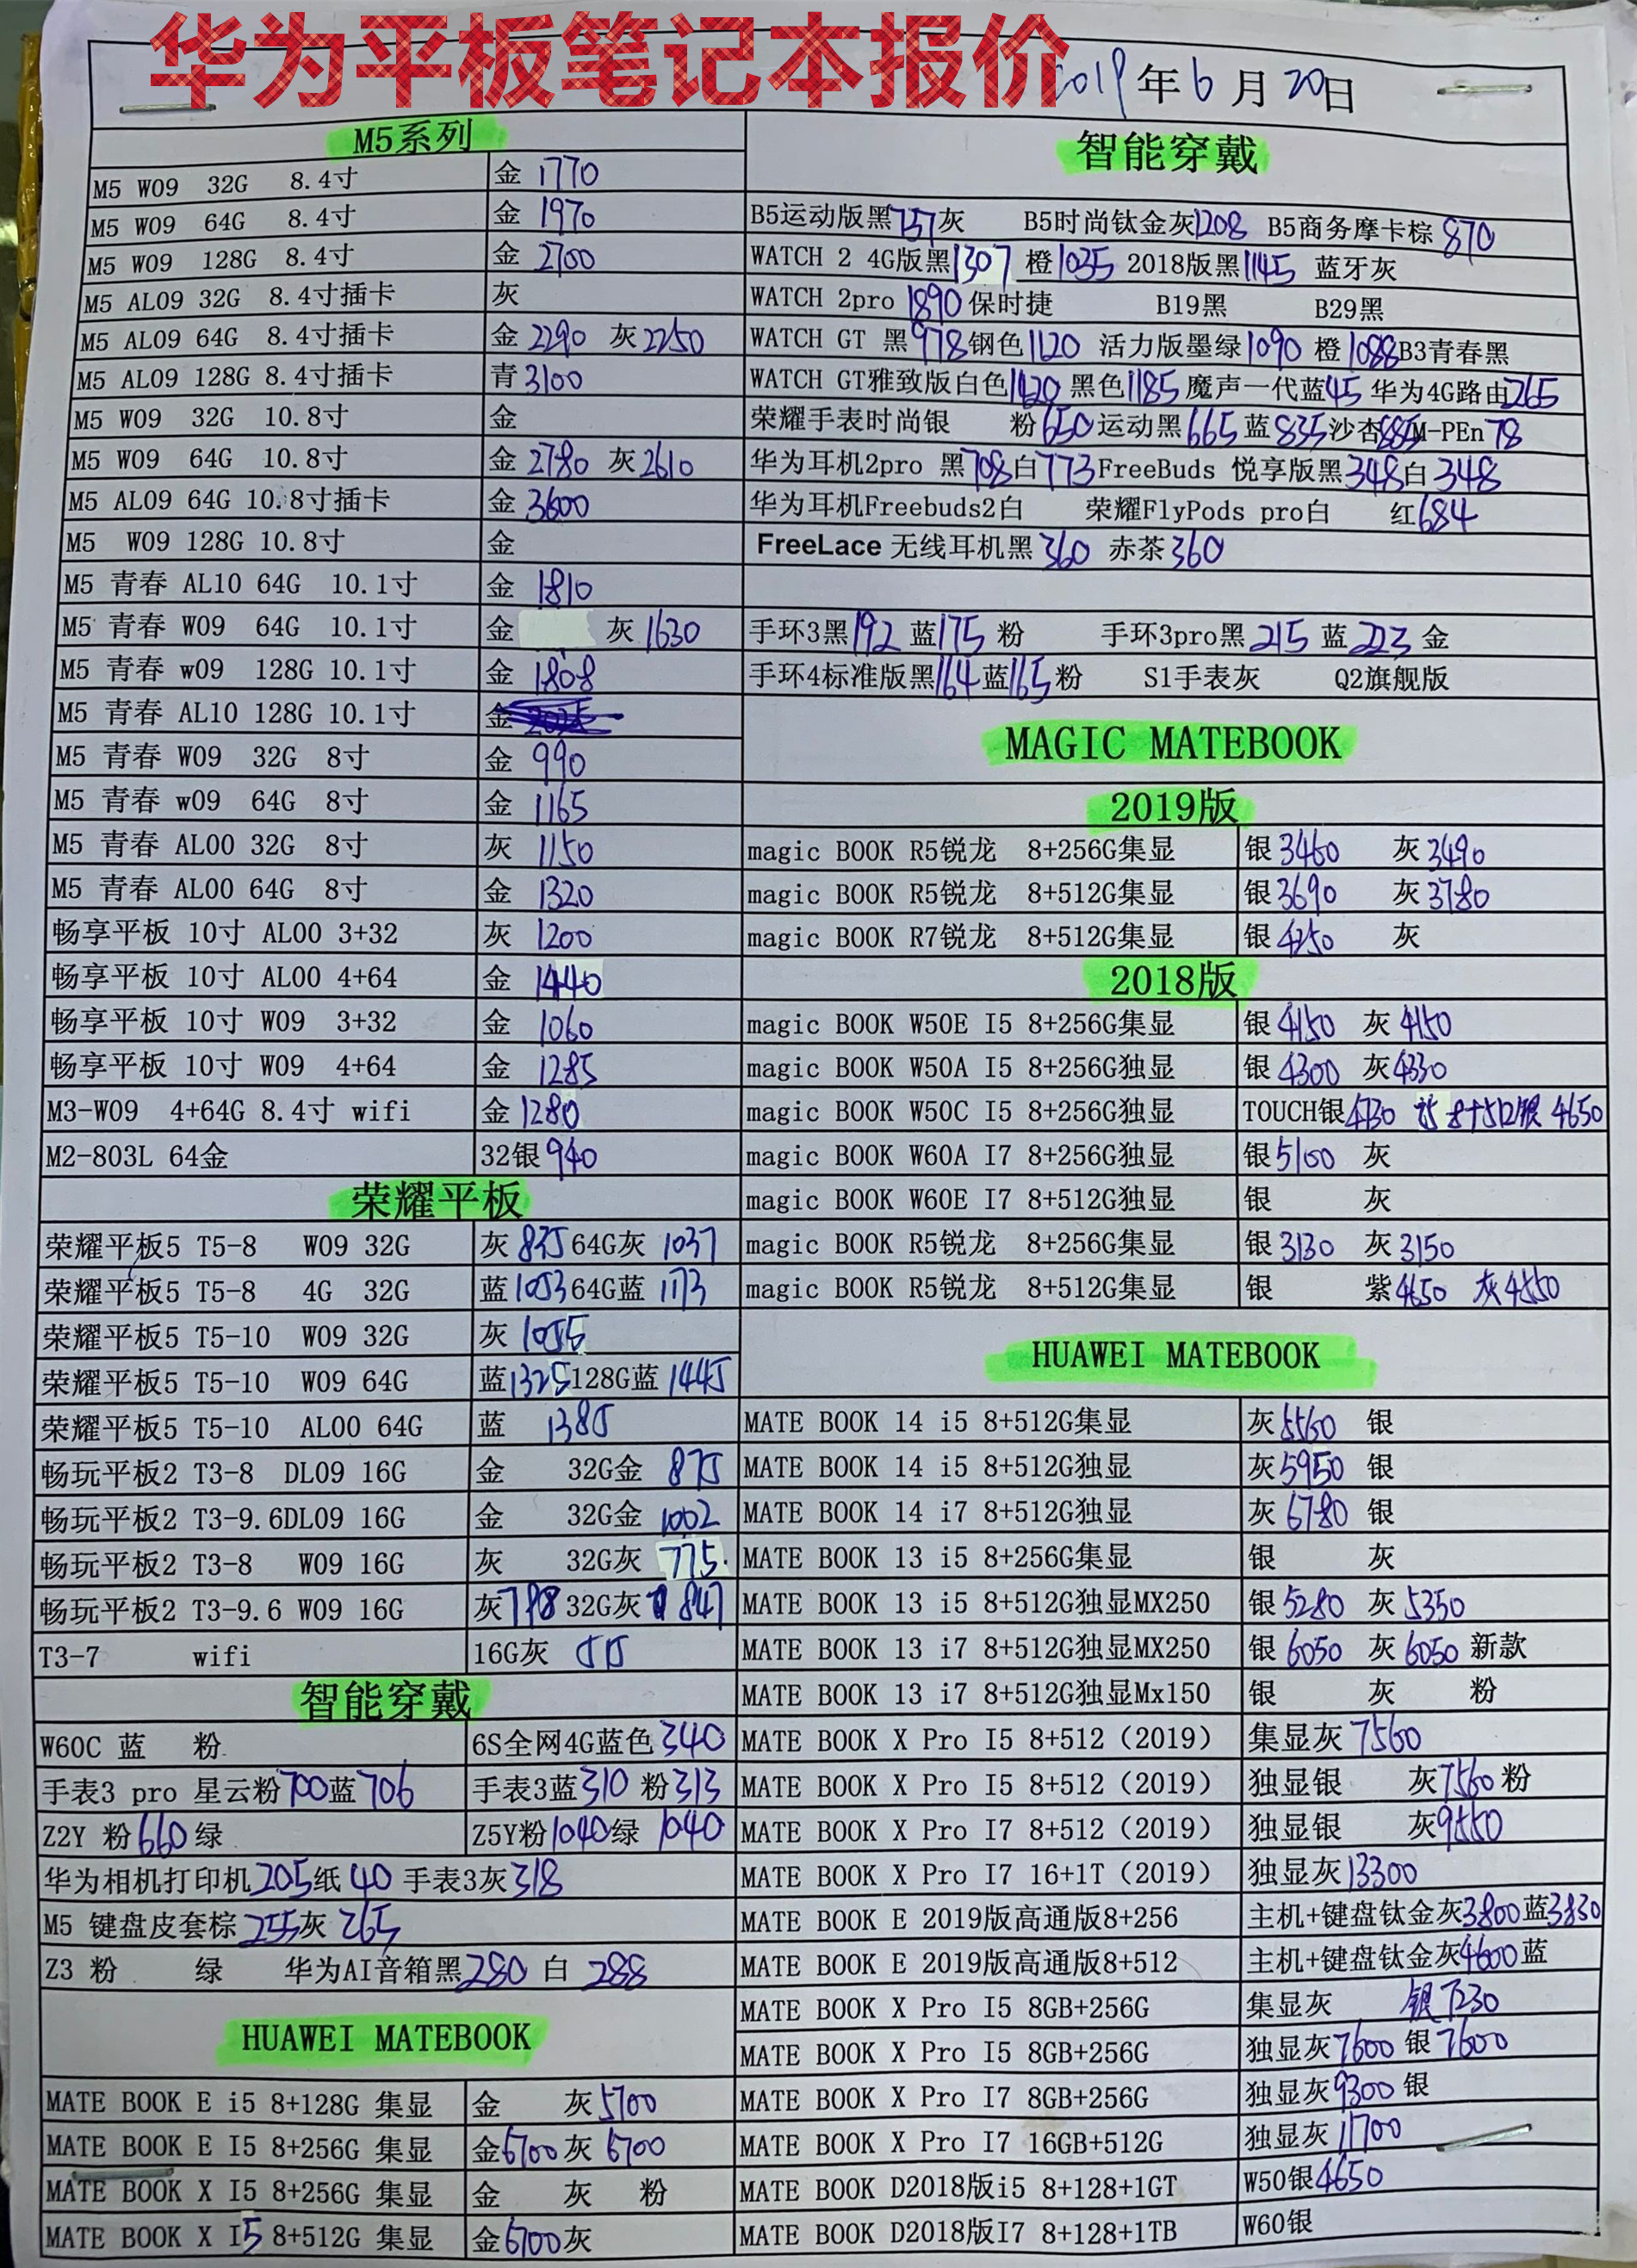 华为平板笔记本报价
2019年6月20日
M5系列
M5 W09 32G 8.4寸 金 1770
M5 W09 64G 8.4寸 金 1970
M5 W09 128G 8.4寸 金 2700
M5 AL09 32G 8.4寸插卡 灰
M5 AL09 64G 8.4寸插卡 金 2290 灰 2250
M5 AL09 128G 8.4寸插卡 青 3100
M5 W09 32G 10.8寸 金
M5 W09 64G 10.8寸 金 2780 灰 2610
M5 AL09 64G 10.8寸插卡 金 3600
M5 W09 128G 10.8寸 金
M5 青春 AL10 64G 10.1寸 金 1810
M5 青春 W09 64G 10.1寸 金 灰 1630
M5 青春 w09 128G 10.1寸 金 1808
M5 青春 AL10 128G 10.1寸 金
M5 青春 W09 32G 8寸 金 990
M5 青春 w09 64G 8寸 金 1165
M5 青春 AL00 32G 8寸 灰 1150
M5 青春 AL00 64G 8寸 金 1320
畅享平板 10寸 AL00 3+32 灰 1200
畅享平板 10寸 AL00 4+64 金 1440
畅享平板 10寸 W09 3+32 金 1060
畅享平板 10寸 W09 4+64 金 1285
M3-W09 4+64G 8.4寸 wifi 金 1280
M2-803L 64金 32银 940
荣耀平板
荣耀平板5 T5-8 W09 32G 灰 835 64G灰 1037
荣耀平板5 T5-8 4G 32G 蓝 1053 64G蓝 1173
荣耀平板5 T5-10 W09 32G 灰 1055
荣耀平板5 T5-10 W09 64G 蓝 1325 128G蓝 1445
荣耀平板5 T5-10 AL00 64G 蓝 1385
畅玩平板2 T3-8 DL09 16G 金 32G金 875
畅玩平板2 T3-9.6DL09 16G 金 32G金 1002
畅玩平板2 T3-8 W09 16G 灰 32G灰 775.
畅玩平板2 T3-9.6 W09 16G 灰 798 32G灰 847
T3-7 wifi 16G灰
智能穿戴
W60C 蓝 粉 6S全网4G蓝色 340
手表3 pro 星云粉 700 蓝 706 手表3蓝 310 粉 313
Z2Y 粉 660 绿 Z5Y粉 1040 绿 1040
华为相机打印机 205 纸 40 手表3灰 318
M5 键盘皮套棕 255 灰 265
Z3 粉 绿 华为AI音箱黑 280 白 288
HUAWEI MATEBOOK
MATE BOOK E i5 8+128G 集显 金 灰 5700
MATE BOOK E I5 8+256G 集显 金 6700 灰 6700
MATE BOOK X I5 8+256G 集显 金 灰 粉
MATE BOOK X I5 8+512G 集显 金 6700 灰
智能穿戴
B5运动版黑 757 灰 B5时尚钛金灰 1208 B5商务摩卡棕 870
WATCH 2 4G版黑 1307 橙 1035 2018版黑 1145 蓝牙灰
WATCH 2pro 1890 保时捷 B19黑 B29黑
WATCH GT 黑 978 钢色 1120 活力版墨绿 1090 橙 1088 B3青春黑
WATCH GT雅致版白色 1120 黑色 1185 魔声一代蓝 45 华为4G路由 265
荣耀手表时尚银 粉 650 运动黑 665 蓝 835 沙杏 885 M-PEn 78
华为耳机2pro 黑 708 白 773 FreeBuds 悦享版黑 348 白 348
华为耳机Freebuds2白 荣耀FlyPods pro白 红 684
FreeLace 无线耳机黑 360 赤茶 360
手环3黑 192 蓝 175 粉 手环3pro黑 215 蓝 223 金
手环4标准版黑 164 蓝 165 粉 S1手表灰 Q2旗舰版
MAGIC MATEBOOK
2019版
magic BOOK R5锐龙 8+256G集显 银 3460 灰 3490
magic BOOK R5锐龙 8+512G集显 银 3690 灰 3780
magic BOOK R7锐龙 8+512G集显 银 4250 灰
2018版
magic BOOK W50E I5 8+256G集显 银 4150 灰 4150
magic BOOK W50A I5 8+256G独显 银 4300 灰 4330
magic BOOK W50C I5 8+256G独显 TOUCH银 4730 i5 8+512银 4650
magic BOOK W60A I7 8+256G独显 银 5100 灰
magic BOOK W60E I7 8+512G独显 银 灰
magic BOOK R5锐龙 8+256G集显 银 3130 灰 3150
magic BOOK R5锐龙 8+512G集显 银 紫 4650 灰 4550
HUAWEI MATEBOOK
MATE BOOK 14 i5 8+512G集显 灰 5560 银
MATE BOOK 14 i5 8+512G独显 灰 5950 银
MATE BOOK 14 i7 8+512G独显 灰 6780 银
MATE BOOK 13 i5 8+256G集显 银 灰
MATE BOOK 13 i5 8+512G独显MX250 银 5280 灰 5350
MATE BOOK 13 i7 8+512G独显MX250 银 6050 灰 6050 新款
MATE BOOK 13 i7 8+512G独显Mx150 银 灰 粉
MATE BOOK X Pro I5 8+512（2019） 集显灰 7560
MATE BOOK X Pro I5 8+512（2019） 独显银 灰 7560 粉
MATE BOOK X Pro I7 8+512（2019） 独显银 灰 9550
MATE BOOK X Pro I7 16+1T（2019） 独显灰 13300
MATE BOOK E 2019版高通版8+256 主机+键盘钛金灰 3800 蓝 3830
MATE BOOK E 2019版高通版8+512 主机+键盘钛金灰 4600 蓝
MATE BOOK X Pro I5 8GB+256G 集显灰 银 7230
MATE BOOK X Pro I5 8GB+256G 独显灰 7600 银 7600
MATE BOOK X Pro I7 8GB+256G 独显灰 9300 银
MATE BOOK X Pro I7 16GB+512G 独显灰 11700
MATE BOOK D2018版i5 8+128+1GT W50银 4650
MATE BOOK D2018版I7 8+128+1TB W60银